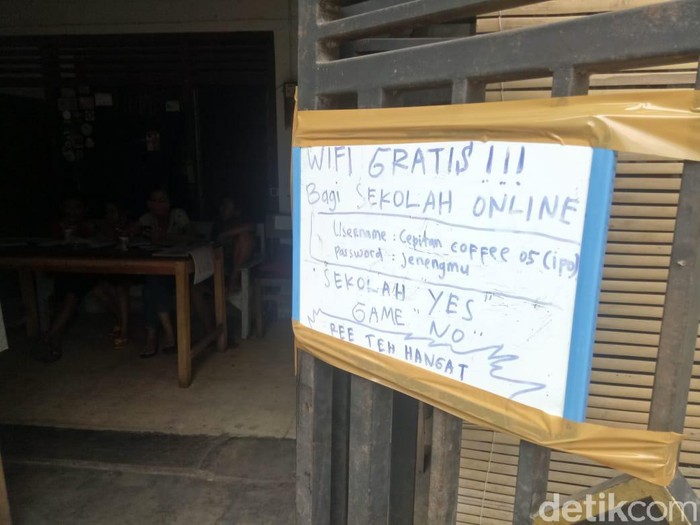 WIFI GRATIS !!!
Bagi SEKOLAH ONLINE
Username : Cepitan COFFEE 05 (ipo)
Password : jenengmu
"SEKOLAH YES"
GAME "NO"
FREE TEH HANGAT
detikcom